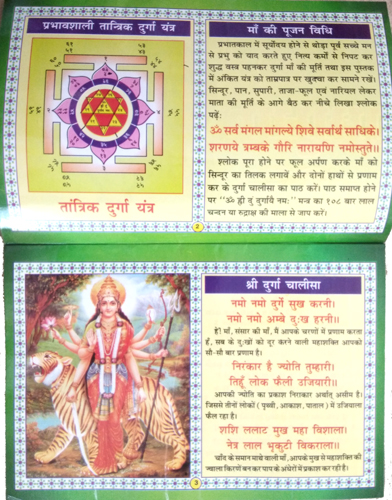 प्रभावशाली तान्त्रिक दुर्गा यंत्र
तांत्रिक दुर्गा यंत्र
माँ की पूजन विधि
प्रभातकाल में सूर्योदय होने से थोड़ा पूर्व सच्चे मन
से प्रभु को याद करते हुए नित्य कर्मो से निपट कर
शुद्ध वस्त्र पहनकर दुर्गा माँ की मूर्ति तथा इस पुस्तक
में अंकित यंत्र को ताम्रपात्र पर खुदवा कर सामने रखें।
सिन्दूर, पान, सुपारी, ताजा-फूल एवं नारियल लेकर
माता की मूर्ति के आगे बैठ कर नीचे लिखा श्लोक
पढ़ें:
ॐ सर्व मंगल मांगल्ये शिवे सर्वार्थ साधिके।
शरणये त्रम्बके गौरि नारायणि नमोस्तुते॥
श्लोक पूरा होने पर फूल अर्पण करके माँ को
सिन्दूर का तिलक लगावें और दोनों हाथों से प्रणाम
कर के दुर्गा चालीसा का पाठ करें। पाठ समाप्त होने
पर "ॐ ह्रीं दुं दुर्गायै नमः" मन्त्र का १०८ बार लाल
चन्दन या रुद्राक्ष की माला से जाप करें।
2
श्री दुर्गा चालीसा
नमो नमो दुर्गे सुख करनी।
नमो नमो अम्बे दुःख हरनी॥
हे! माँ, संसार की माँ, मैं आपके चरणों में प्रणाम करता
हूँ, सब के दुःखों को दूर करने वाली महाशक्ति आपको
सौ-सौ बार प्रणाम है।
निरंकार है ज्योति तुम्हारी।
तिहूँ लोक फैली उजियारी॥
आपकी ज्योति का प्रकाश निराकार अर्थात् असीम है।
जिससे तीनों लोकों ( पृथ्वी, आकाश, पाताल ) में उजियाला
फैल रहा है।
शशि ललाट मुख महा विशाला।
नेत्र लाल भृकुटी विकराला॥
चाँद के समान माथे वाली माँ, आपके मुख में महाशक्ति की
ज्वाला किरणें बन कर पाप के अंधेरों में प्रकाश कर रही है।
3